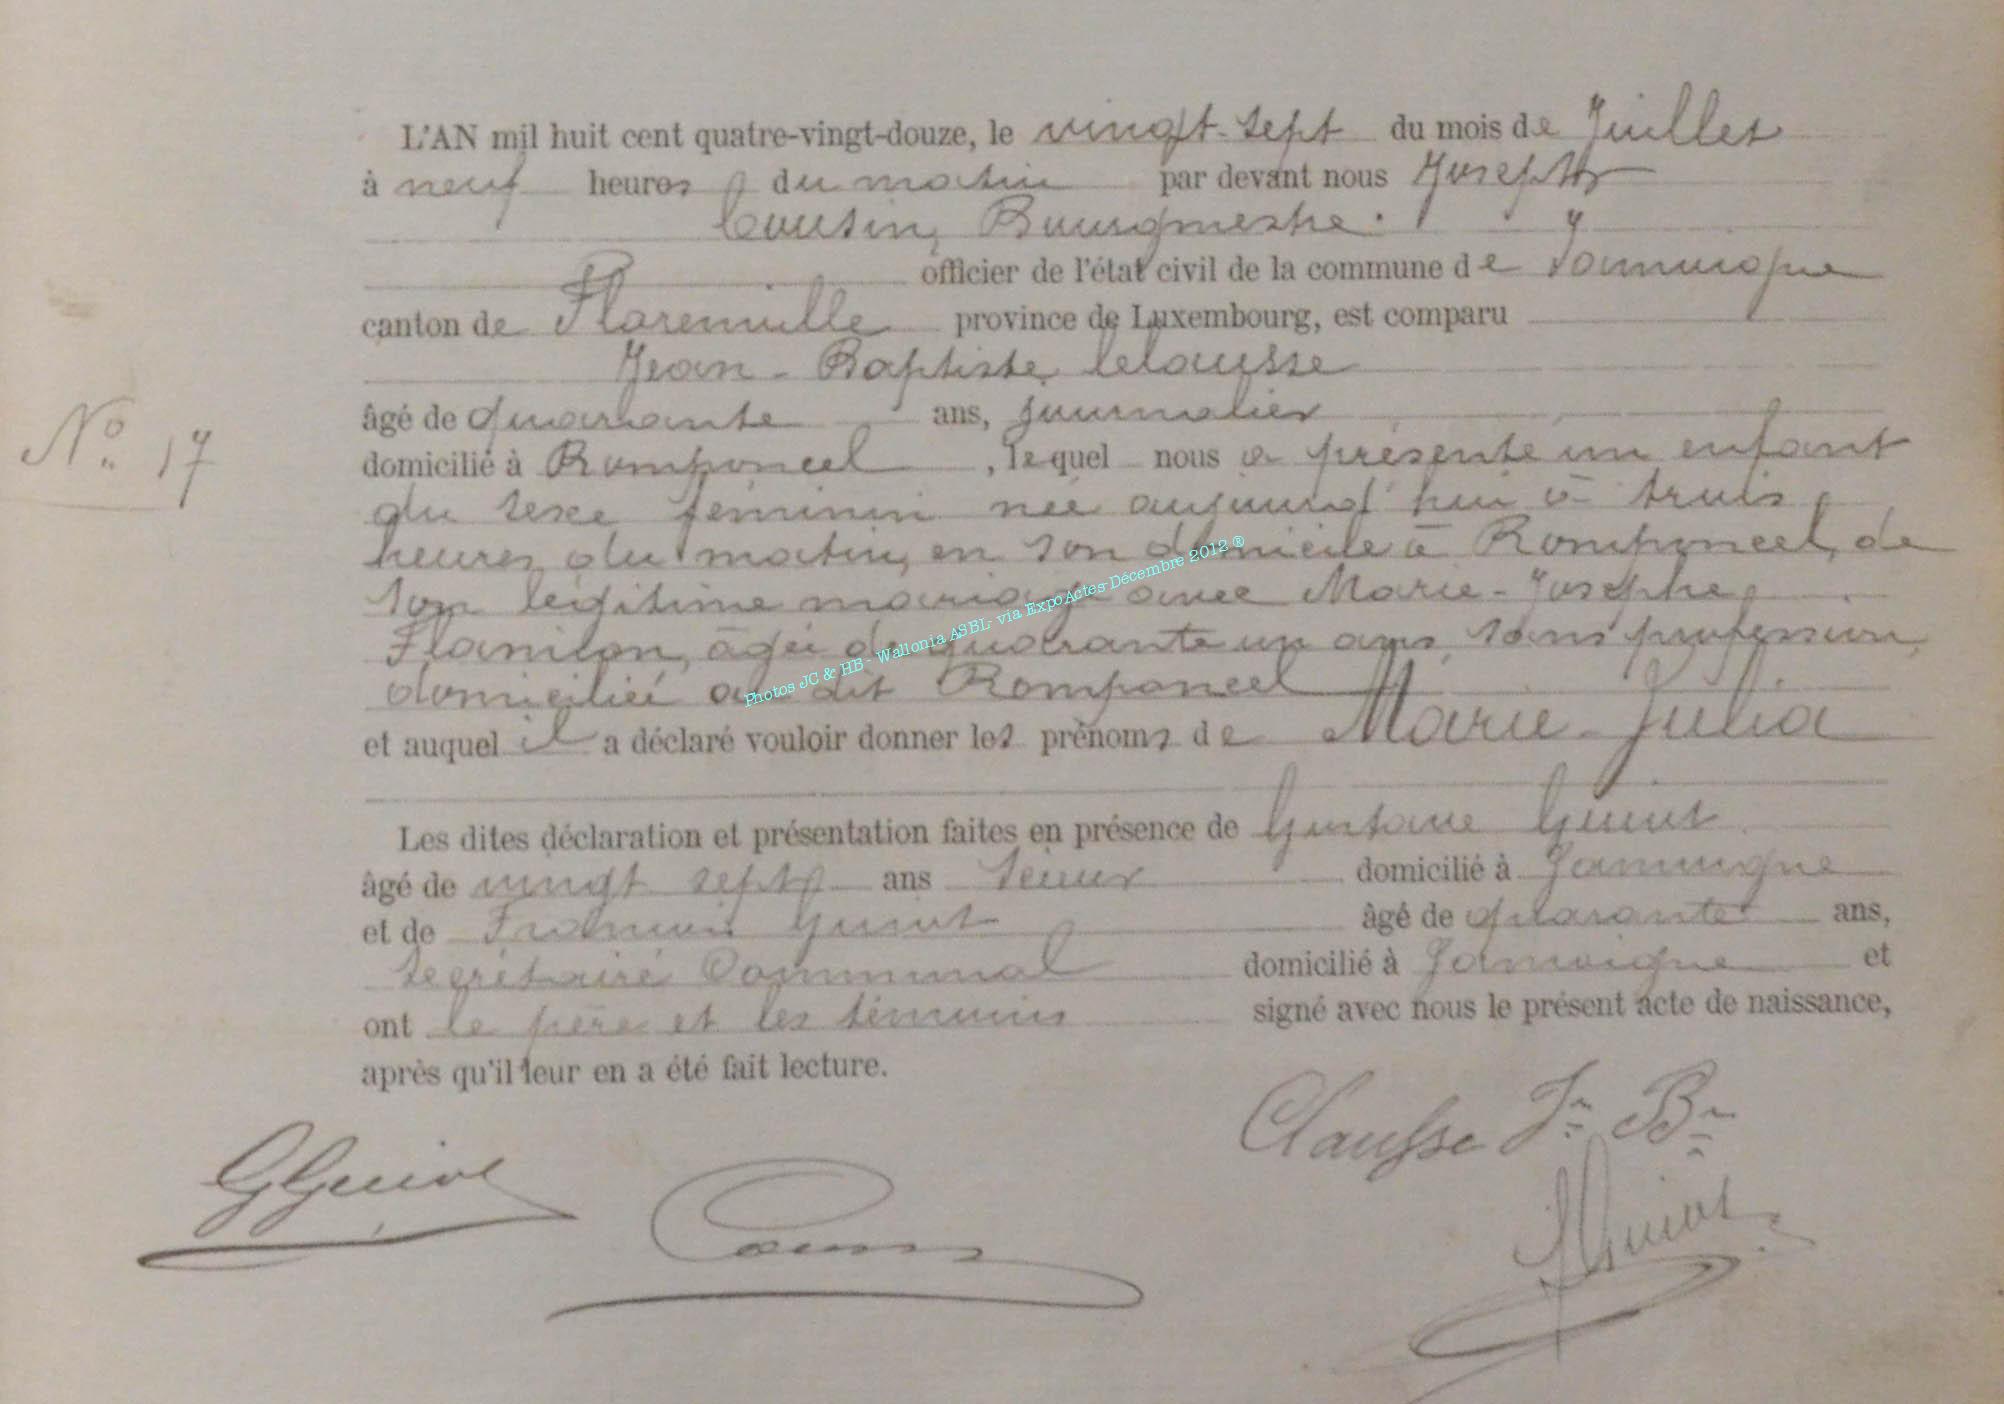 L'AN mil huit cent quatre-vingt-douze, le vingt-sept du mois de Juillet
à neuf heures du matin par devant nous Joseph
Cousin, Bourgmestre.
officier de l'état civil de la commune de Jamoigne
canton de Florenville province de Luxembourg, est comparu
Jean-Baptiste Clausse
âgé de quarante ans, journalier
domicilié à Romponcel, lequel nous a présenté un enfant
du sexe féminin née aujourd'hui à trois
heures du matin, en son domicile à Romponcel, de
son légitime mariage avec Marie-Josephe
Flamion, âgée de quarante un ans, sans profession,
domiciliée au dit Romponcel
et auquel il a déclaré vouloir donner les prénoms de Marie-Julia
Les dites déclaration et présentation faites en présence de Gustave Guiot
âgé de vingt sept ans domicilié à Jamoigne
et de François Guiot âgé de quarante ans,
secrétaire Communal domicilié à Jamoigne et
ont le père et les témoins signé avec nous le présent acte de naissance,
après qu'il leur en a été fait lecture.
No. 17
Clausse Jn Bn
GGuiot
Cousin
FGuiot
Photos JC & HB - Wallonia ASBL- via ExpoActes-Décembre 2012 ®